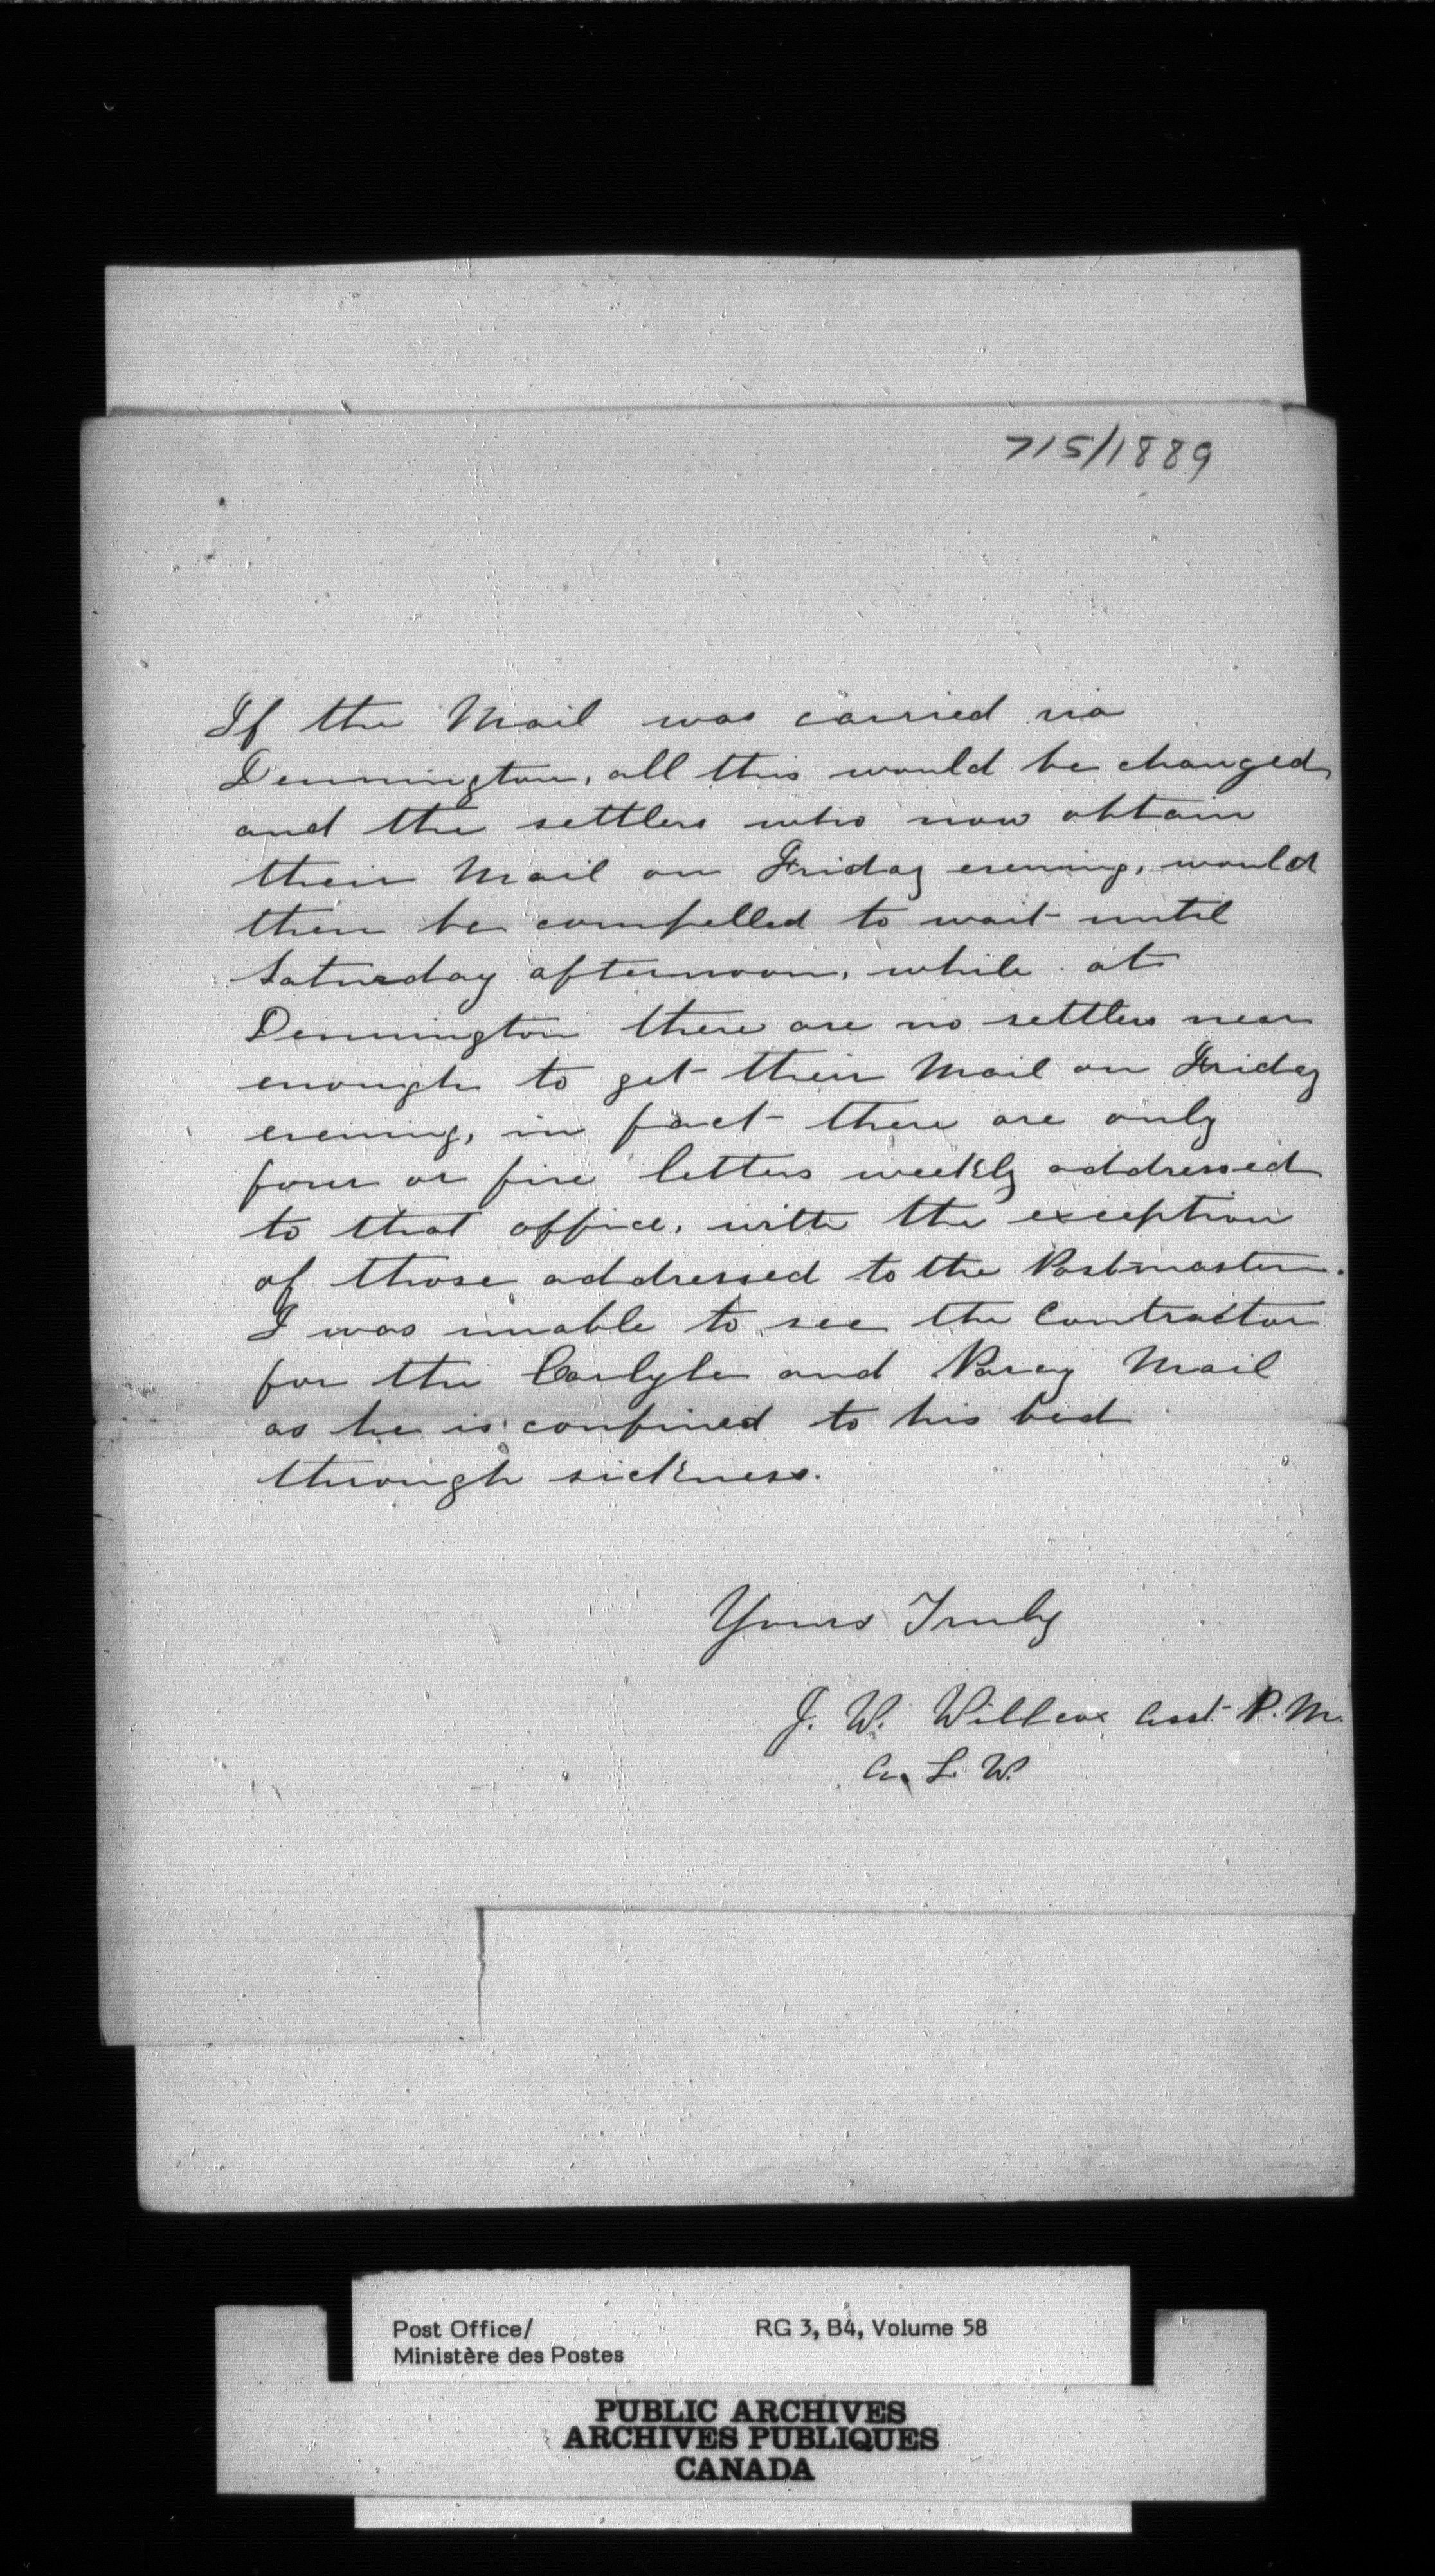 715/1889
If the Mail was carried via
Dennington, all this would be changed
and the settlers who now obtain
their Mail on Friday evening, would
then be compelled to wait until
Saturday afternoon, while at
Dennington there are no settlers near
enough to get their Mail on Friday
evening, in fact there are only
four or five letters weekly addressed
to that office, with the exception
of those addressed to the Postmaster.
I was unable to see the Contractor
for the Carlyle and Percy Mail
as he is confined to his bed
through sickness.
Yours Truly
J. W. Willcox Asst P. M.
A. L. W.
Post Office/
Ministère des Postes
RG 3, B4, Volume 58
PUBLIC ARCHIVES
ARCHIVES PUBLIQUES
CANADA